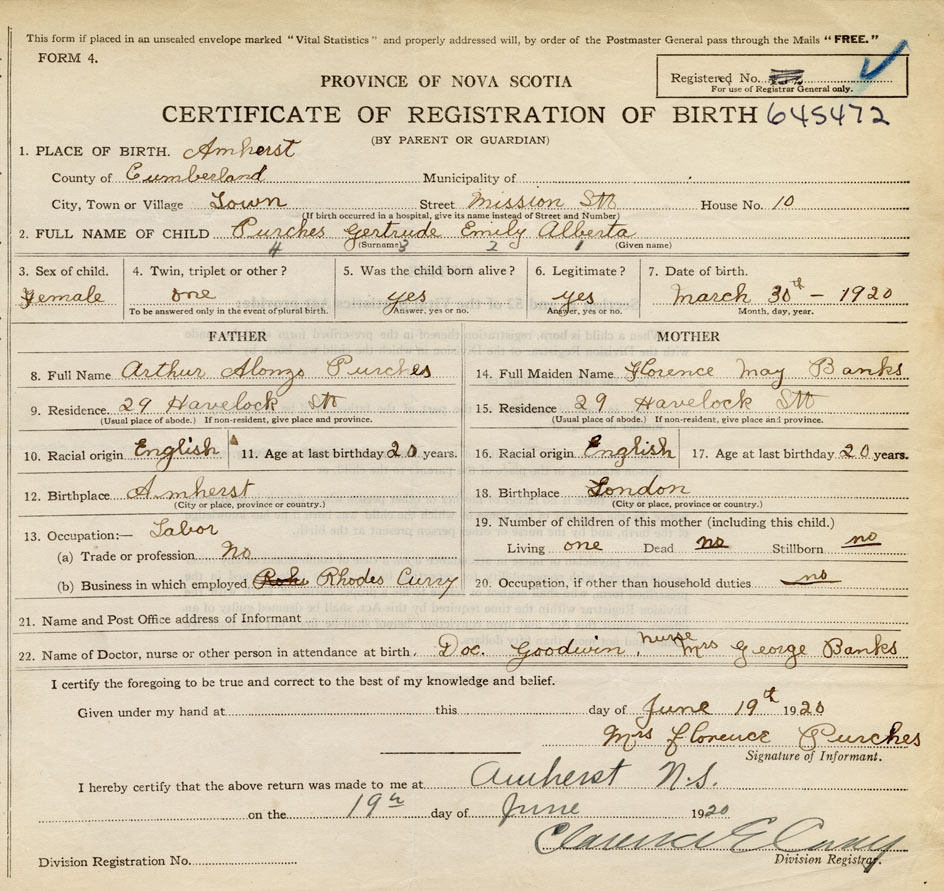 This form if placed in an unsealed envelope marked "Vital Statistics" and properly addressed will, by order of the Postmaster General pass through the Mails "FREE."
FORM 4.
Registered No.
For use of Registrar General only.
PROVINCE OF NOVA SCOTIA
CERTIFICATE OF REGISTRATION OF BIRTH 645472
(BY PARENT OR GUARDIAN)
1. PLACE OF BIRTH. Amherst
County of Cumberland Municipality of
City, Town or Village Town Street Mission Stt House No. 10
(If birth occurred in a hospital, give its name instead of Street and Number)
2. FULL NAME OF CHILD Purches Gertrude Emily Alberta
4 (Surname) 3 2 1 (Given name)
3. Sex of child. 4. Twin, triplet or other? 5. Was the child born alive? 6. Legitimate? 7. Date of birth.
Female one yes yes March 30th - 1920
To be answered only in the event of plural birth. Answer, yes or no. Answer, yes or no. Month, day, year.
FATHER MOTHER
8. Full Name Arthur Alonzo Purches 14. Full Maiden Name Florence May Banks
9. Residence. 29 Havelock Stt 15. Residence 29 Havelock Stt
(Usual place of abode.) If non-resident, give place and province. (Usual place of abode.) If non-resident, give place and province.
10. Racial origin English 11. Age at last birthday 20 years. 16. Racial origin English 17. Age at last birthday 20 years.
12. Birthplace Amherst 18. Birthplace London
(City or place, province or country.) (City or place, province or country.)
13. Occupation:— Labor 19. Number of children of this mother (including this child.)
(a) Trade or profession No Living one Dead no Stillborn no
(b) Business in which employed Rhodes Curry 20. Occupation, if other than household duties. no
21. Name and Post Office address of Informant
22. Name of Doctor, nurse or other person in attendance at birth. Doc. Goodwin, nurse Mrs George Banks
I certify the foregoing to be true and correct to the best of my knowledge and belief.
Given under my hand at this day of June 19th 1920
Mrs Florence Purches
Signature of Informant.
I hereby certify that the above return was made to me at Amherst N.S.
on the 19th day of June 1920
Clarence E
Division Registration No. Division Registrar.